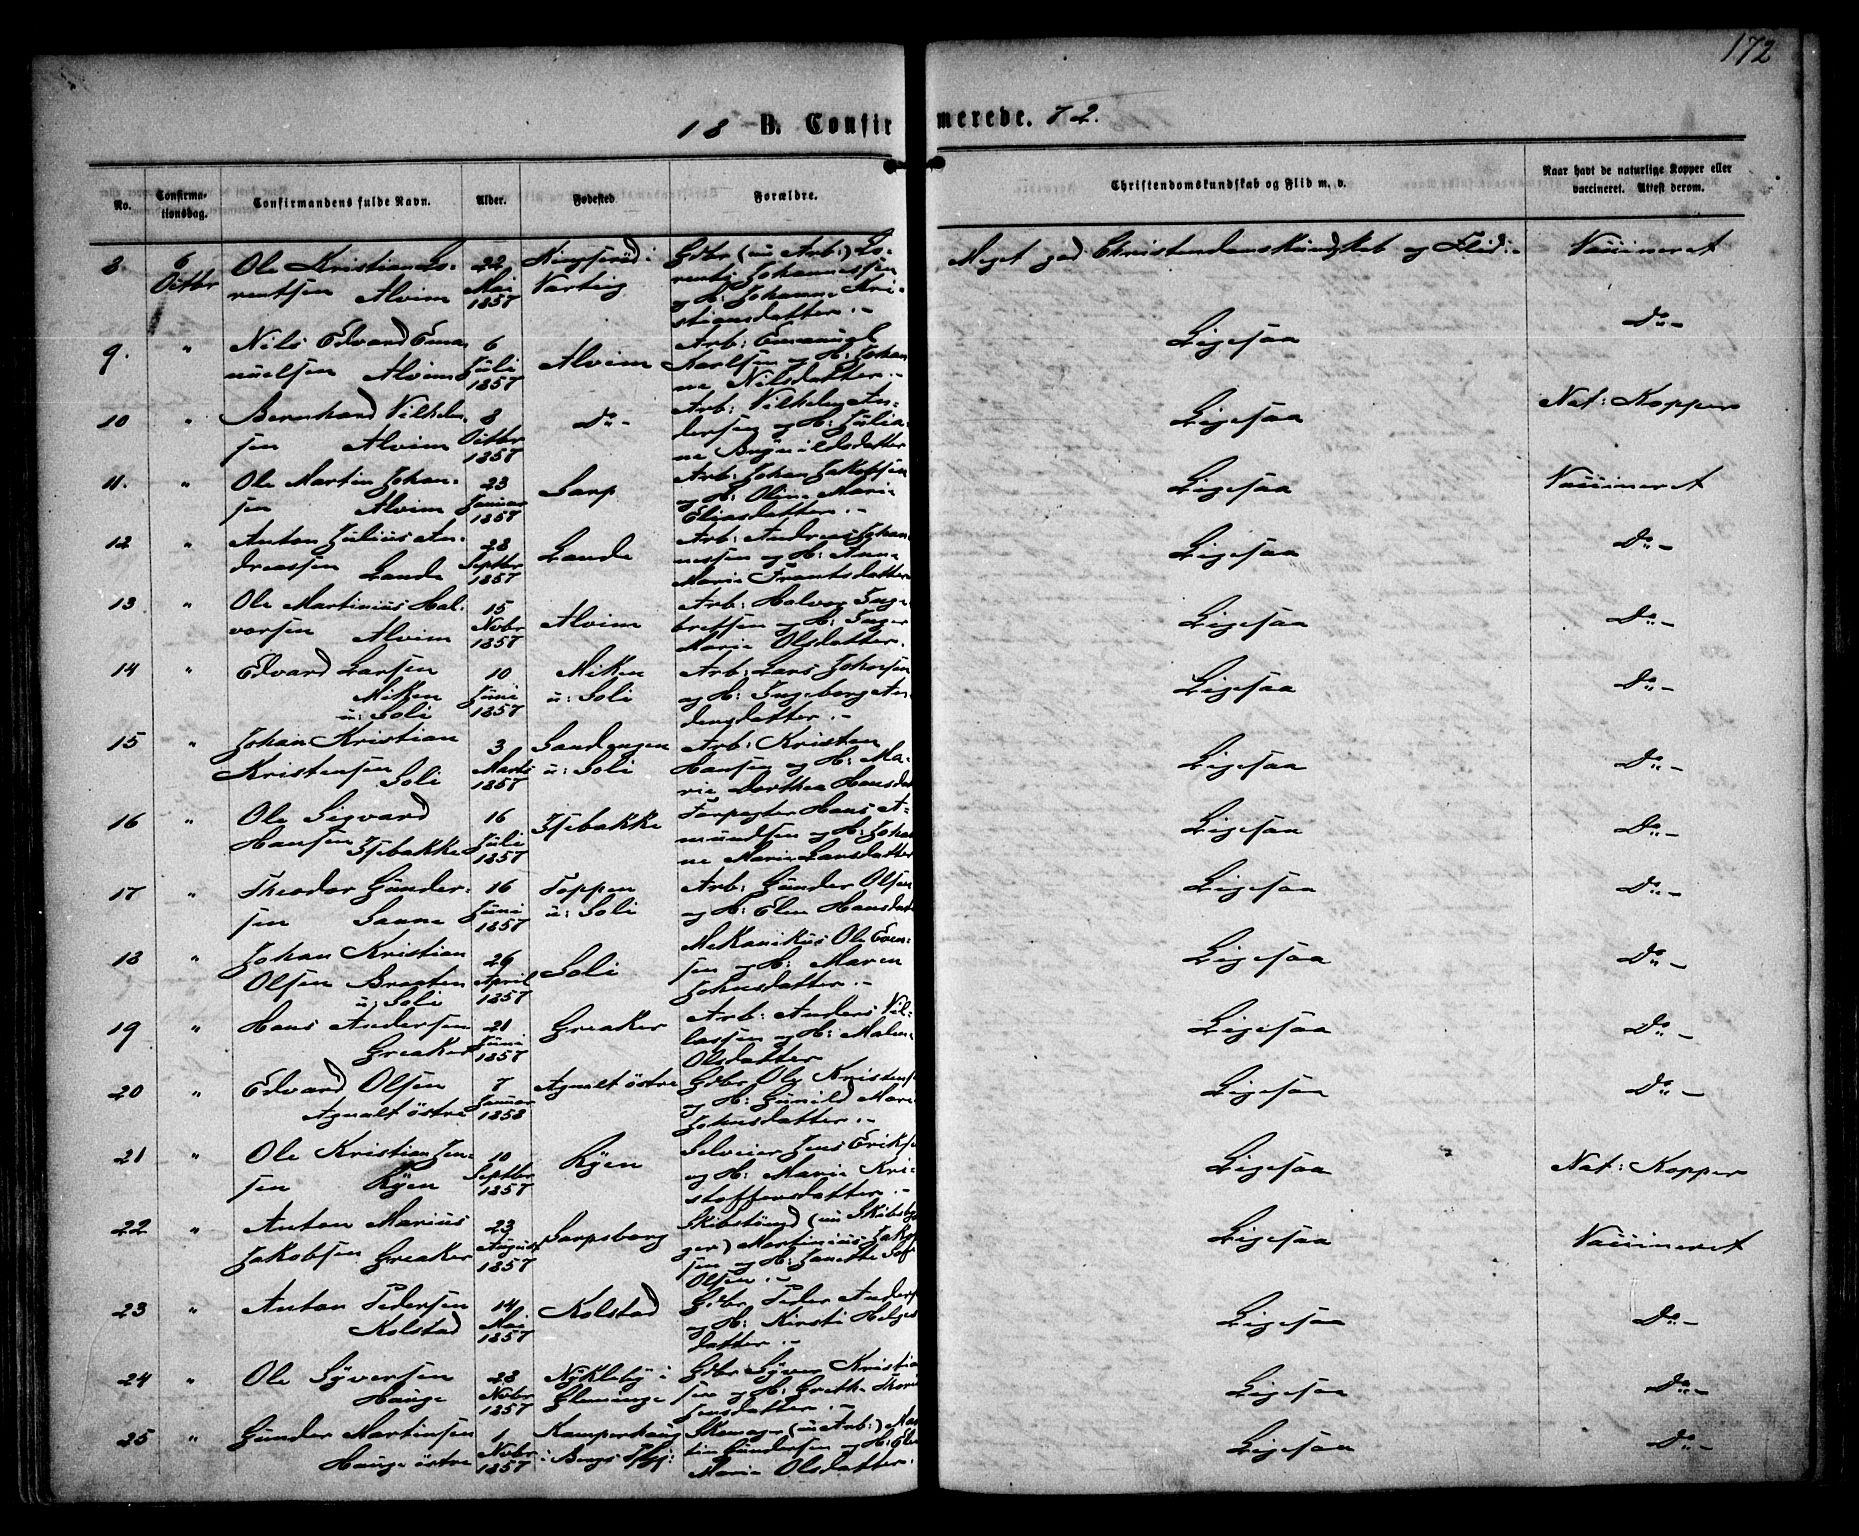 172
18 D. Confirmerede. 72.
No. Confirmationsdag. Confirmandens fulde Navn. Alder. Fødested. Forældre. Christendomskundskab og Flid m. v. Naar havt de naturlige Kopper eller vaccineret. Attest derom.
8. 6 Octbr Ole Kristian Lorentsen Alvim 22 Mai 1857 i Varteig Gdbr (nu Arb:) Lorentz Johannessen og H: Johanne Kristiansdatter.- Meget god Christendomskundskab og Flid.- Vaccineret
9. " Nils Edvard Emanuelsen Alvim 6 Juli 1857 Alvim Arb: Emanuel Karlsen og H: Johanne Nilsdatter.- Ligesaa Do-
10 " Bernhard Vilhelmsen Alvim 8 Octbr 1857 Do- Arb: Vilhelm Andersen og H: Juliane Ligesaa Nat: Kopper
11. " Ole Martin Johansen Alvim 23 Januar 1857 Sarp Arb: Johan Jakobsen og H: Oline Marie Eliasdatter.- Ligesaa Vaccineret
12 " Anton Julius Andreassen Lande 28 Septbr 1857 Lande Arb: Andreas Johannessen og H: Anne Marie Frantsdatter Ligesaa Do-
13 " Ole Martinius Halvorsen Alvim 15 Novbr 1857 Alvim Arb: Halvor Ingebretsen og H: Inger Marie Olsdatter. Ligesaa Do-
14 " Edvard Larsen Miken u: Soli 10 Juni 1857 Miken u: Soli Arb: Lars Johnsen og H: Ingeborg Andersdatter.- Ligesaa Do-
15 " Johan Kristian Kristensen Soli 3 Marts 1857 Sandengen u: Soli Arb: Kristen Hansen og H: Marie Dorthea Hansdat Ligesaa Do-
16 " Ole Sigvard Hansen Isebakke 16 Juli 1857 Isebakke Forpagter Hans Amundsen og H: Johanne Marie Larsdatter Ligesaa Do-
17 " Theodor Gundersen Sanne 16 Juni 1857 Toppen u: Soli Arb: Gunder Olsen og H: Elen Hansdat Ligesaa Do-
18 " Johan Kristian Olsen Braaten u: Soli 26 April 1857 Soli Mekanikus Ole Evensen og H: Maren Johnsdatter.- Ligesaa Do-
19 " Hans Andersen Greaker 21 Juni 1857 Greaker Arb: Anders Nillassen og H: Malene Olsdatter Ligesaa Do-
20 " Edvard Olsen Agnalt østre 7 Januar 1858 Agnalt østre Gdbr Ole Kristens og H: Gunild Marie Johnsdatter.- Ligesaa Do-
21 " Ole Kristian Jensen Ryen 10 Septbr 1857 Ryen Selveier Jens Eriks og H: Marie Kristoffersdatter.- Ligesaa Nat: Kopper
22 " Anton Marius Jakobsen Greaker 23 August 1857 Sarpsborg (nu Martinius Jakobsen og H: Janette Olsen.- Ligesaa Vaccineret
23 " Anton Pedersen Kolstad 14 Mai 1857 Kolstad Gdbr Peder Anders og H: Kirsti Helgesdatter.- Ligesaa Do-
24 " Ole Syversen Hauge 28 Novbr 1857 Nykleby i Glemminge Gdbr Syver Kristiansen og H: Grethe Ligesaa Do-
25 " Gunder Martinsen Hauge østre 1 Novbr 1857 Kamperhaug i Bergs Skomager (nu Arb:) Martin Gundersen og H: Elen Marie Olsdatter. Ligesaa Do-